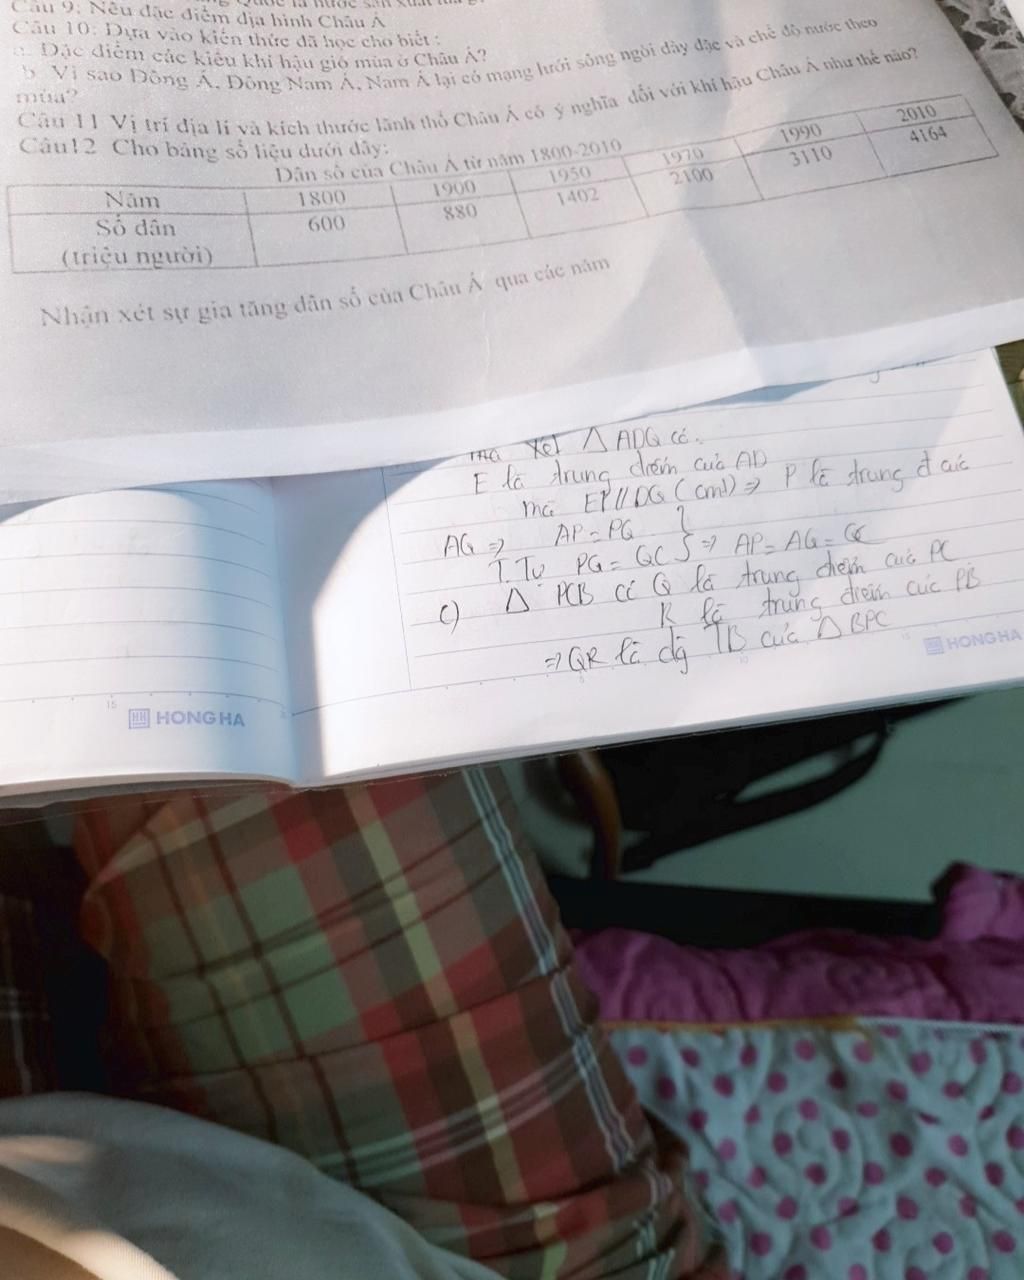 Quốc là nước sản xuất lúa g
Câu 9: Nêu đặc điểm địa hình Châu Á
Câu 10: Dựa vào kiến thức đã học cho biết :
a. Đặc điểm các kiểu khí hậu gió mùa ở Châu Á?
b. Vì sao Đông Á, Đông Nam Á, Nam Á lại có mạng lưới sông ngòi dày đặc và chế độ nước theo
mùa?
Câu 11 Vị trí địa lí và kích thước lãnh thổ Châu Á có ý nghĩa đối với khí hậu Châu Á như thế nào?
Câu12 Cho bảng số liệu dưới đây:
Dân số của Châu Á từ năm 1800-2010
Năm 1800 1900 1950 1970 1990 2010
Số dân 600 880 1402 2100 3110 4164
(triệu người)
Nhận xét sự gia tăng dân số của Châu Á qua các năm
Xét △ ADG có.
E là trung điểm của AD
mà EP//DG (cmt) ⇒ P là trung đ của
AG ⇒ AP = PG
T.Tự PG = QC } ⇒ AP = AG = QC
c) △ PCB có Q là trung điểm của PC
R là trung điểm của PB
⇒ QR là đg TB của △ BPC
HONG HA
15
HH HONG HA